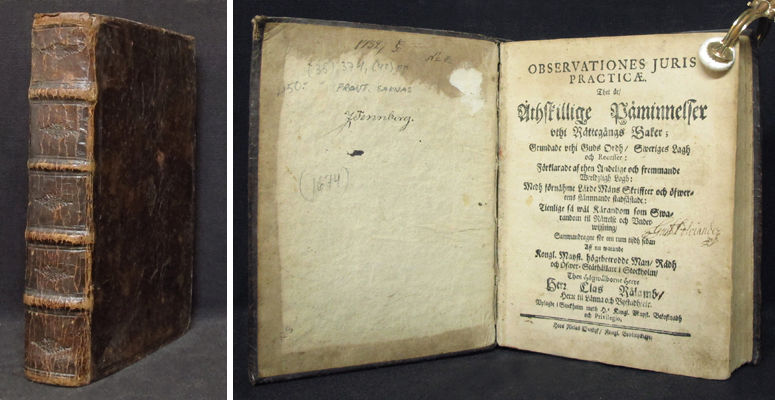 1939
(36), 374, (42) pp
FRONT. SAKNAS
(1674)
OBSERVATIONES JURIS
PRACTICÆ.
Thet är/
Åthskillige Påminnelser
vthi Rättegångs Saker;
Grundade vthi Guds Ordh/ Sweriges Lagh
och Recesser:
Förklarade af then Andelige och fremmande
Werldzligh Lagh:
Medh förnähme Lärde Mäns Skriffter och öfwer-
eens stämmande stadfästade:
Tienlige så wäl Kärandom som Swa-
random til Rättelse och Vnder-
wijsning/
Sammandragne för en rum tijdh sedan
Aff nu warande
Kongl. Mayst. högtbetrodde Man/ Rådh
och Öfwer-Ståthållare i Stockholm/
Then Högwälborne Herre
Herr Clas Rålamb/
Herre til Länna och Bystadh
i Stockholm medh
och Privilegio.